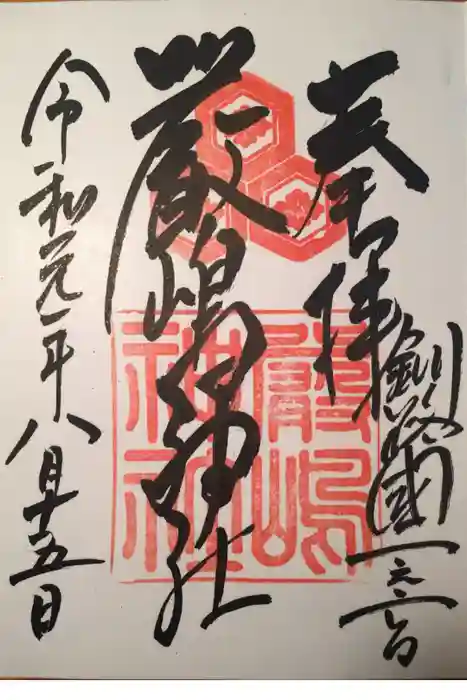 奉拝
釧路國一之宮
嚴嶋神社
嚴嶋
神社
令和元年八月十五日